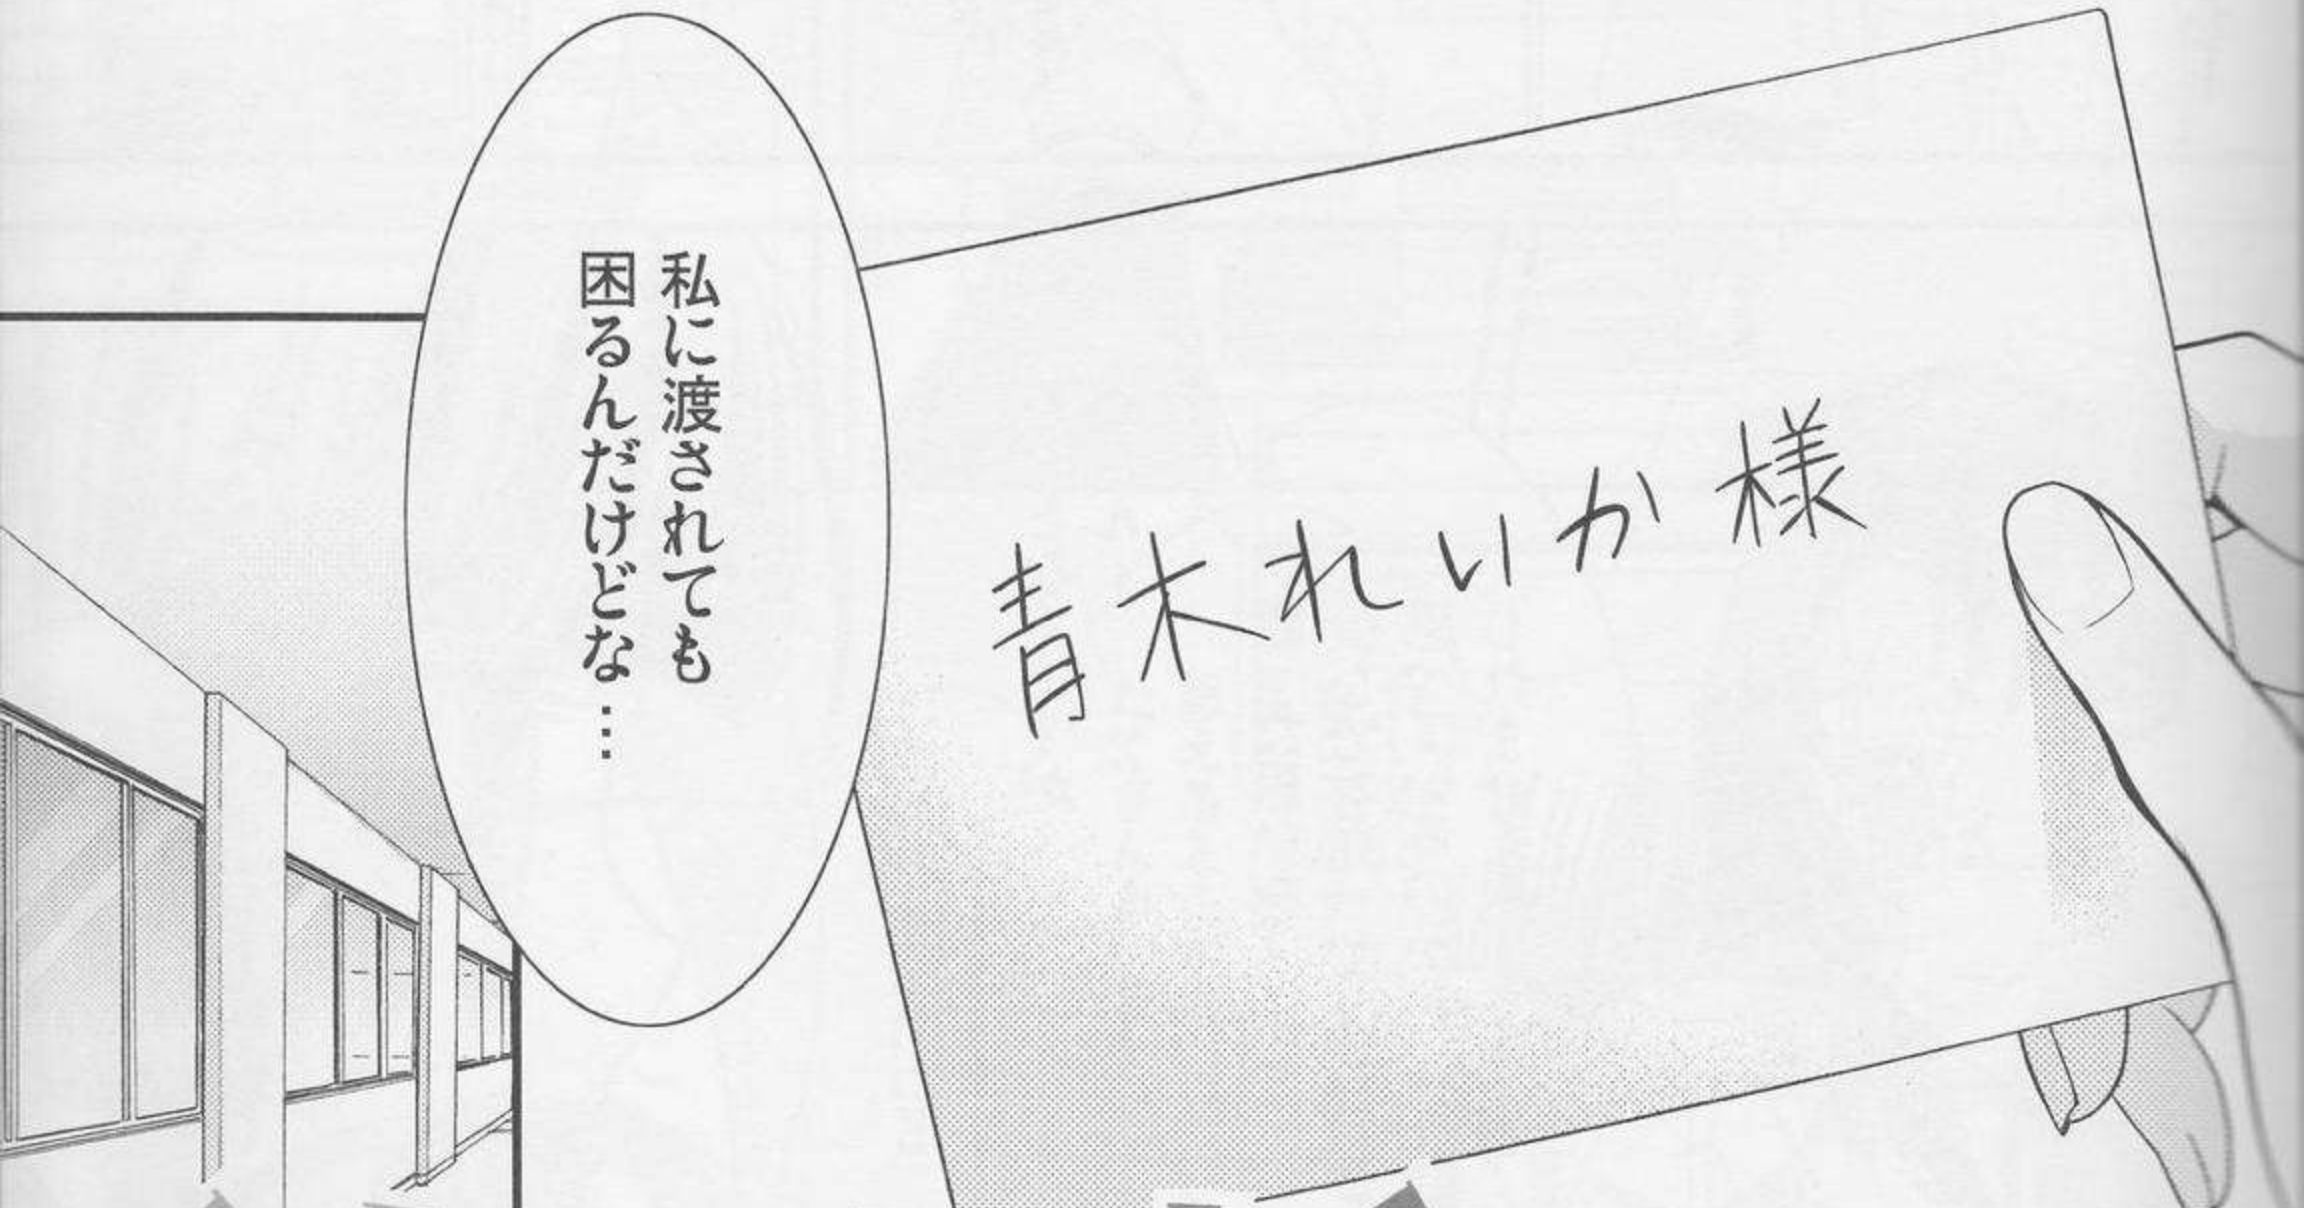 青木れいか様
私に渡されても
困るんだけどな…